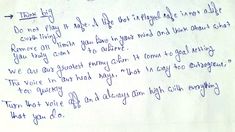 → Think big
Do not play it safe. A life that is played safe is not a life worth living
Remove all limits you have in your mind and think about what you truly want to achieve.
We are our greatest enemy when it comes to goal setting
The voice in our head says, "that is way too outrageous,"
too quickly
Turn that voice off and always aim high with everything
that you do.